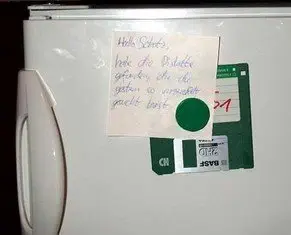 Hallo Schatz,
habe die Diskette
gefunden, die du
gestern so verzweifelt
gesucht hast.
01
HD
BASF
2HD